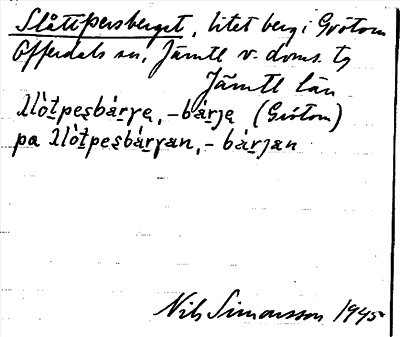 Slåttpersberget, litet berg i Grötom
Offerdals sn, Jämtl v. doms. tg
Jämtl län
ʌlòtpesbárγe, -bárje (Grötom)
pa ʌlòtpesbárγan, -bárjan
Nils Simonsson 1945